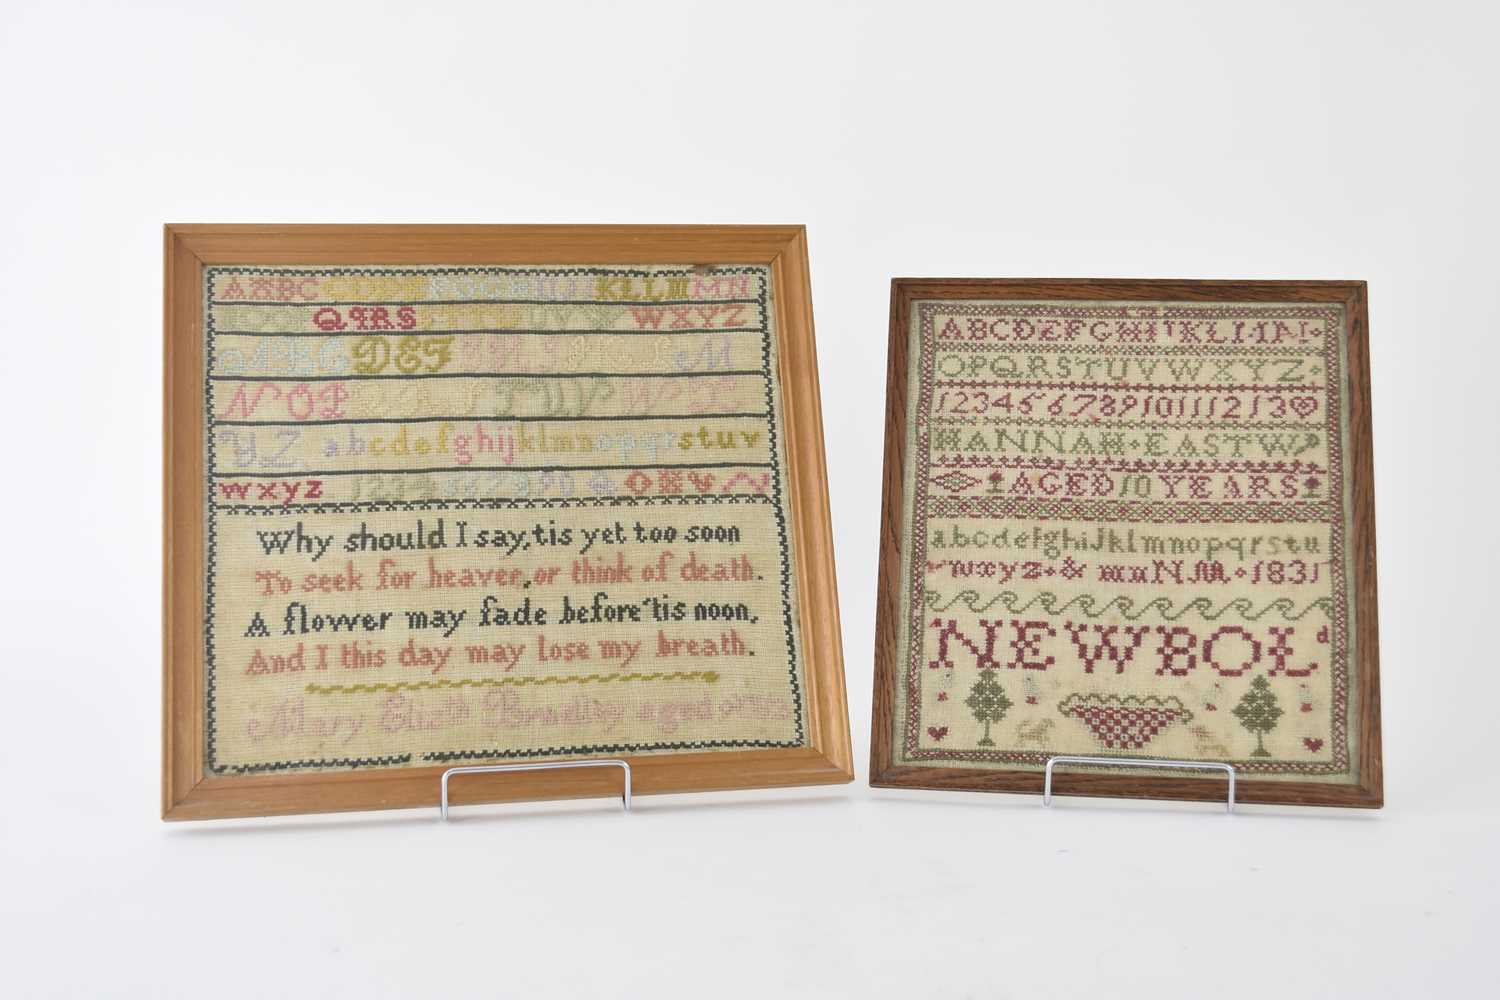 QqRS
WXYZ
DEF
M
NOP
YZ abcdefghijklmnopqrstuv
wxyz
Why should I say, tis yet too soon
To seek for heaven, or think of death.
A flower may fade before 'tis noon,
And I this day may lose my breath.
Mary Elizth Bradley aged
ABCDEFGHIJKLMN
OPQRSTUVWXYZ
1 2 3 4 5 6 7 8 9 10 11 12 13
HANNAH EASTWD
AGED 10 YEARS
abcdefghijklmnopqrstu
vwxyz & 1831
NEWBOLd